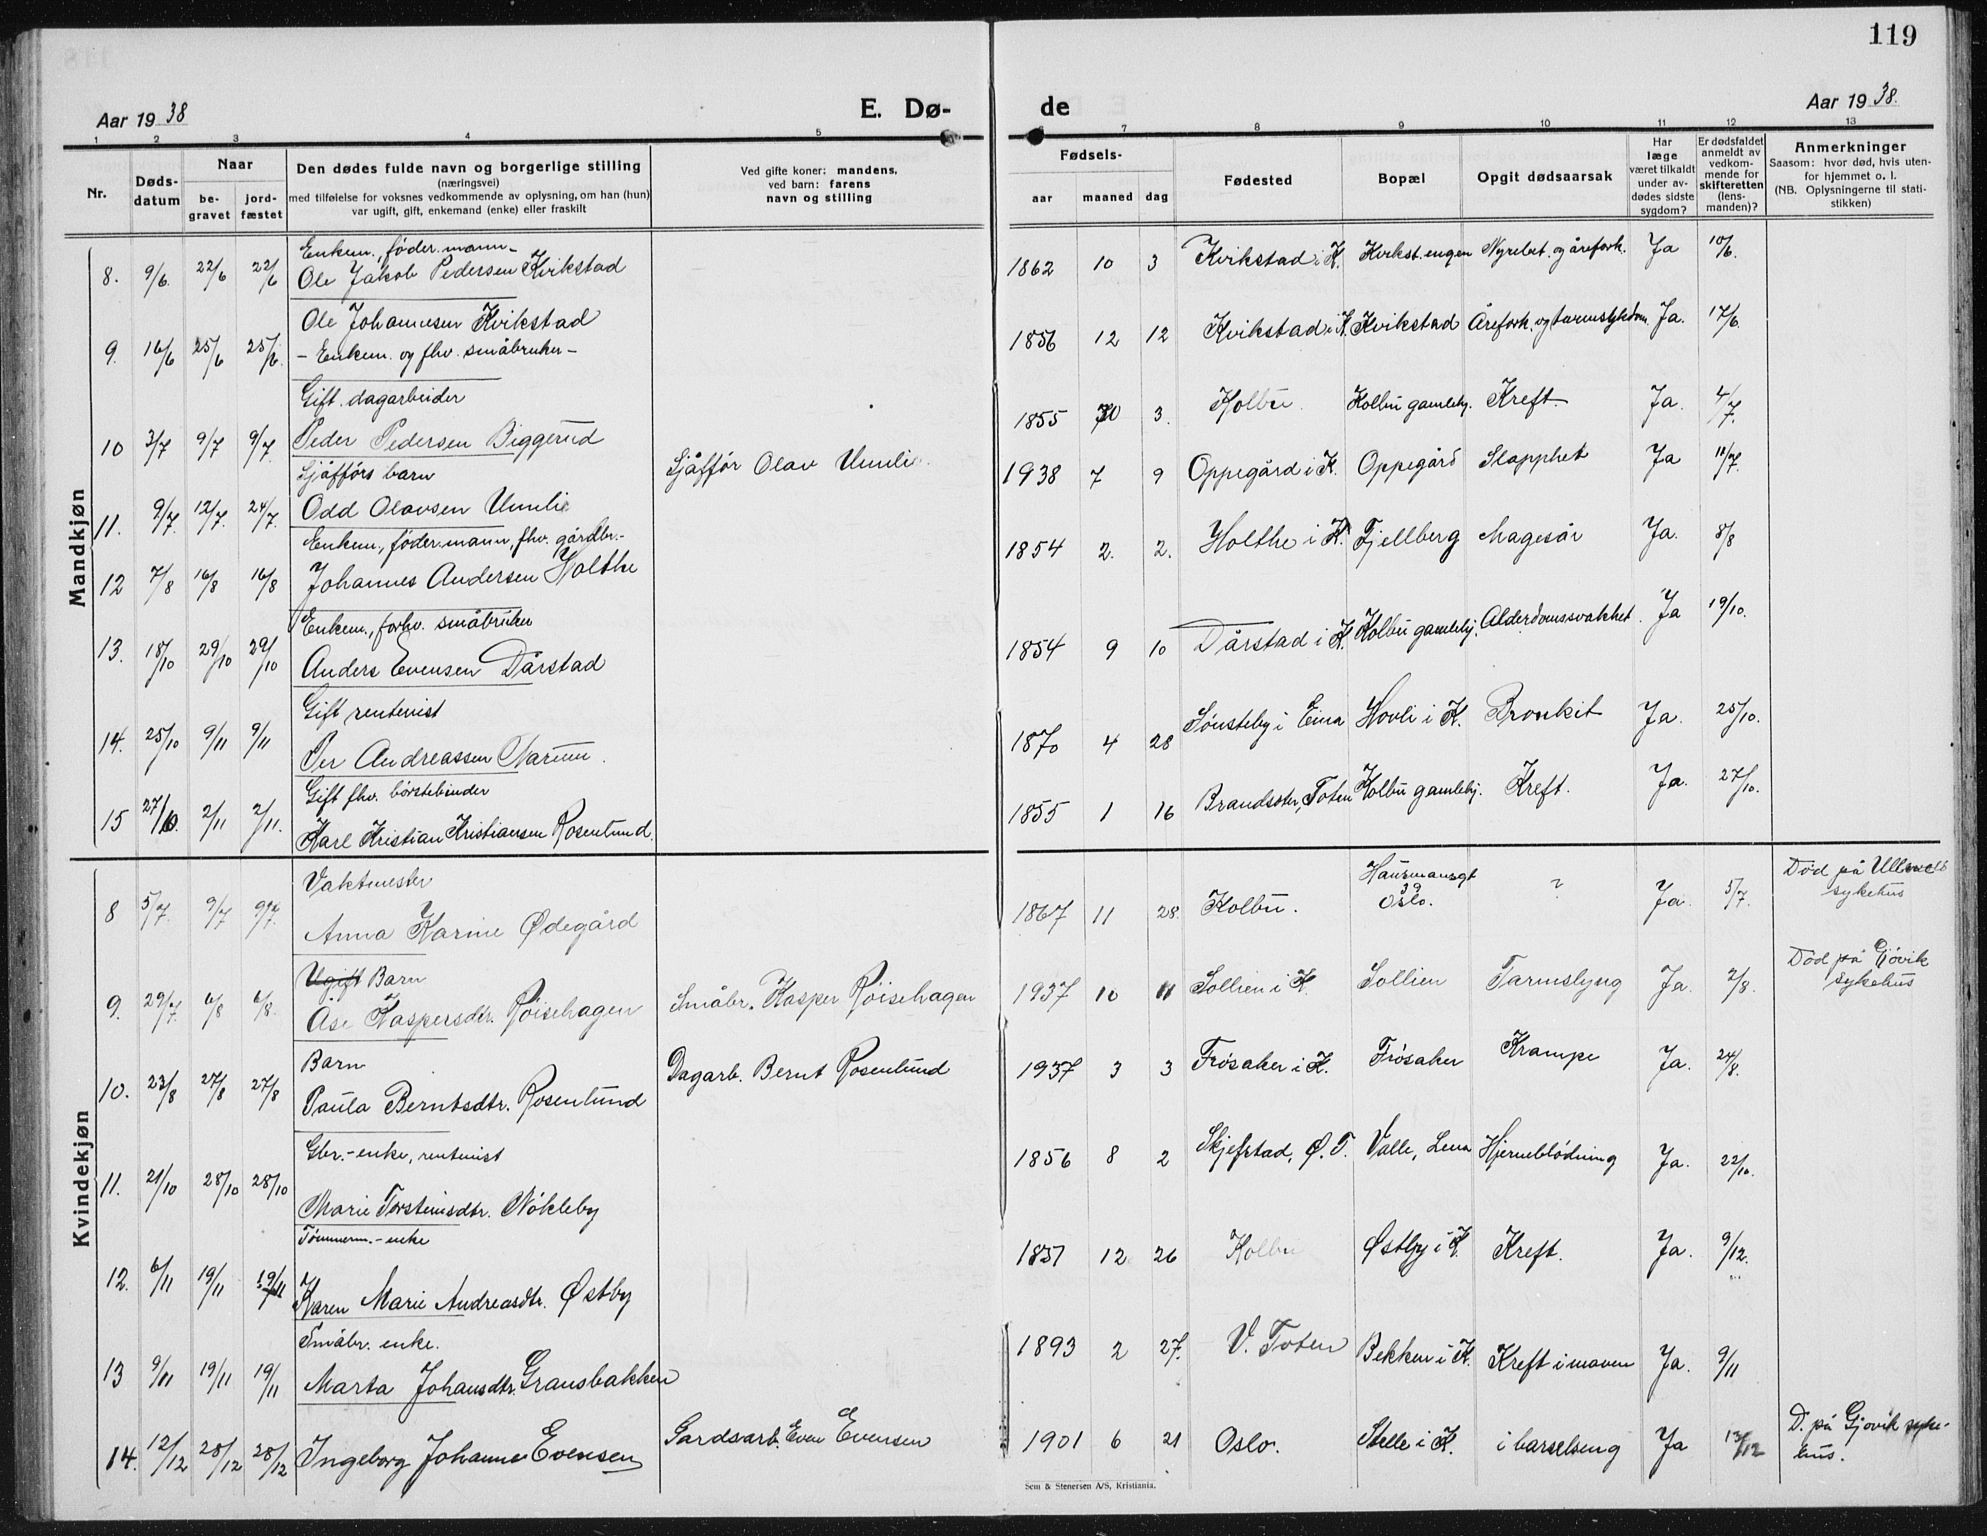 119
Aar 1938 E. Dø- de Aar 1938.
1 2 3 4 5 6 7 8 9 10 11 12 13
Nr. | Døds-datum | Naar be-gravet | jord-fæstet | Den dødes fulde navn og borgerlige stilling (næringsvei) med tilføielse for voksnes vedkommende av oplysning, om han (hun) var ugift, gift, enkemand (enke) eller fraskilt | Ved gifte koner: mandens, ved barn: farens navn og stilling | Fødsels- aar | maaned | dag | Fødested | Bopæl | Opgit dødsaarsak | Har læge været tilkaldt under av-dødes sidste sygdom? | Er dødsfaldet anmeldt av vedkom-mende for skifteretten (lens-manden)? | Anmerkninger Saasom: hvor død, hvis uten-for hjemmet o. l. (NB. Oplysningerne til stati-stikken)
Mandkjøn
Enkem., føder.mann-
8. 9/6. 22/6 22/6 Ole Jakob Pedersen Kvikstad 1862 10 3 Kvikstad i K. Kvikst.engen Nyrebet. og årefork. Ja 10/6.
Ole Johannesen Kvikstad
9. 16/6 25/6 25/6. - Enkem. og fhv. småbruker- 1856 12 12 Kvikstad i K. Kvikstad Årefork. og tarmsykdom Ja. 17/6.
Gift. dagarbeider
10 3/7 9/7 9/7. Peder Pedersen Biggerud 1855 10 3. Kolbu. Kolbu gamlehj. Kreft. Ja. 4/7.
Sjåffórs barn
11. 9/7. 12/7. 24/7. Odd Olavsen Umli Sjåffór Olav Umli. 1938 7 9 Oppegård i K. Oppegård Slapphet Ja 11/7.
Enkem., føder.mann, fhv. gårdbr.-
12 7/8 16/8 16/8 Johannes Andersen Holthe 1854 2. 2. Holthe i K. Fjellberg Magesår Ja. 8/8
Enkem., forhv. småbruker
13. 18/10 29/10 29/10 Anders Evensen Dårstad 1854 9 10 Dårstad i K. Kolbu gamlehj. Alderdomssvakhet. Ja 19/10.
Gift, rentenist
14. 25/10 9/11 9/11 Per Andreassen Narum. 1870 4 28 Sønsteby i Eina Hovli i K. Bronkit Ja. 25/10.
Gift fhv. børstebinder
15 27/10. 2/11 2/11. Karl Kristian Kristiansen Rosenlund. 1855 1 16 Brandsoter, Toten Kolbu gamlehj. Kreft. Ja. 27/10.
Kvindekjøn
Vaktmester
8 5/7. 9/7 9/7. Anna Karine Ødegård 1867 11 28. Kolbu. Hausmansgt 39 Oslo. ? Ja. 5/7. Død på Ullevål sykehus
Ugift Barn
9. 29/7. 6/8 6/8. Åse Kaspersdtr. Røisehagen Småbr. Kasper Røisehagen 1937 10 11 Sollien i K. Sollien Tarmslyng Ja. 2/8. Død på Gjøvik sykehus
Barn
10. 23/8 27/8 27/8 Paula Berntsdtr. Rosenlund Dagarb. Bernt Rosenlund 1937 3 3 Frøsaker i K. Frøsaker Krampe Ja. 24/8.
Gbr.-enke, rentenist
11. 21/10 28/10 28/10 Marie Torsteinsdtr. Nøkleby 1856 8 2 Skjefstad, Ø. T. Valle, Lena Hjerneblødning Ja. 22/10.
Tømmerm.-enke
12. 6/11 19/11 19/11 Karen Marie Andreasdtr. Østby 1857 12 26 Kolbu Østby i K. Kreft. Ja. 9/12.
Småbr. enke.
13 9/11 19/11 19/11 Marta Johansdtr. Gransbakken 1893 2 27. V. Toten Bekken i K. Kreft i maven Ja. 9/11
14. 12/12 28/12 28/12 Ingeborg Johanne Evensen Gardsarb. Even Evensen 1901 6 21 Oslo. Stelle i K. i barselseng Ja 13/12 D. på Gjøvik syke-hus.
Sem & Stenersen A/S, Kristiania.